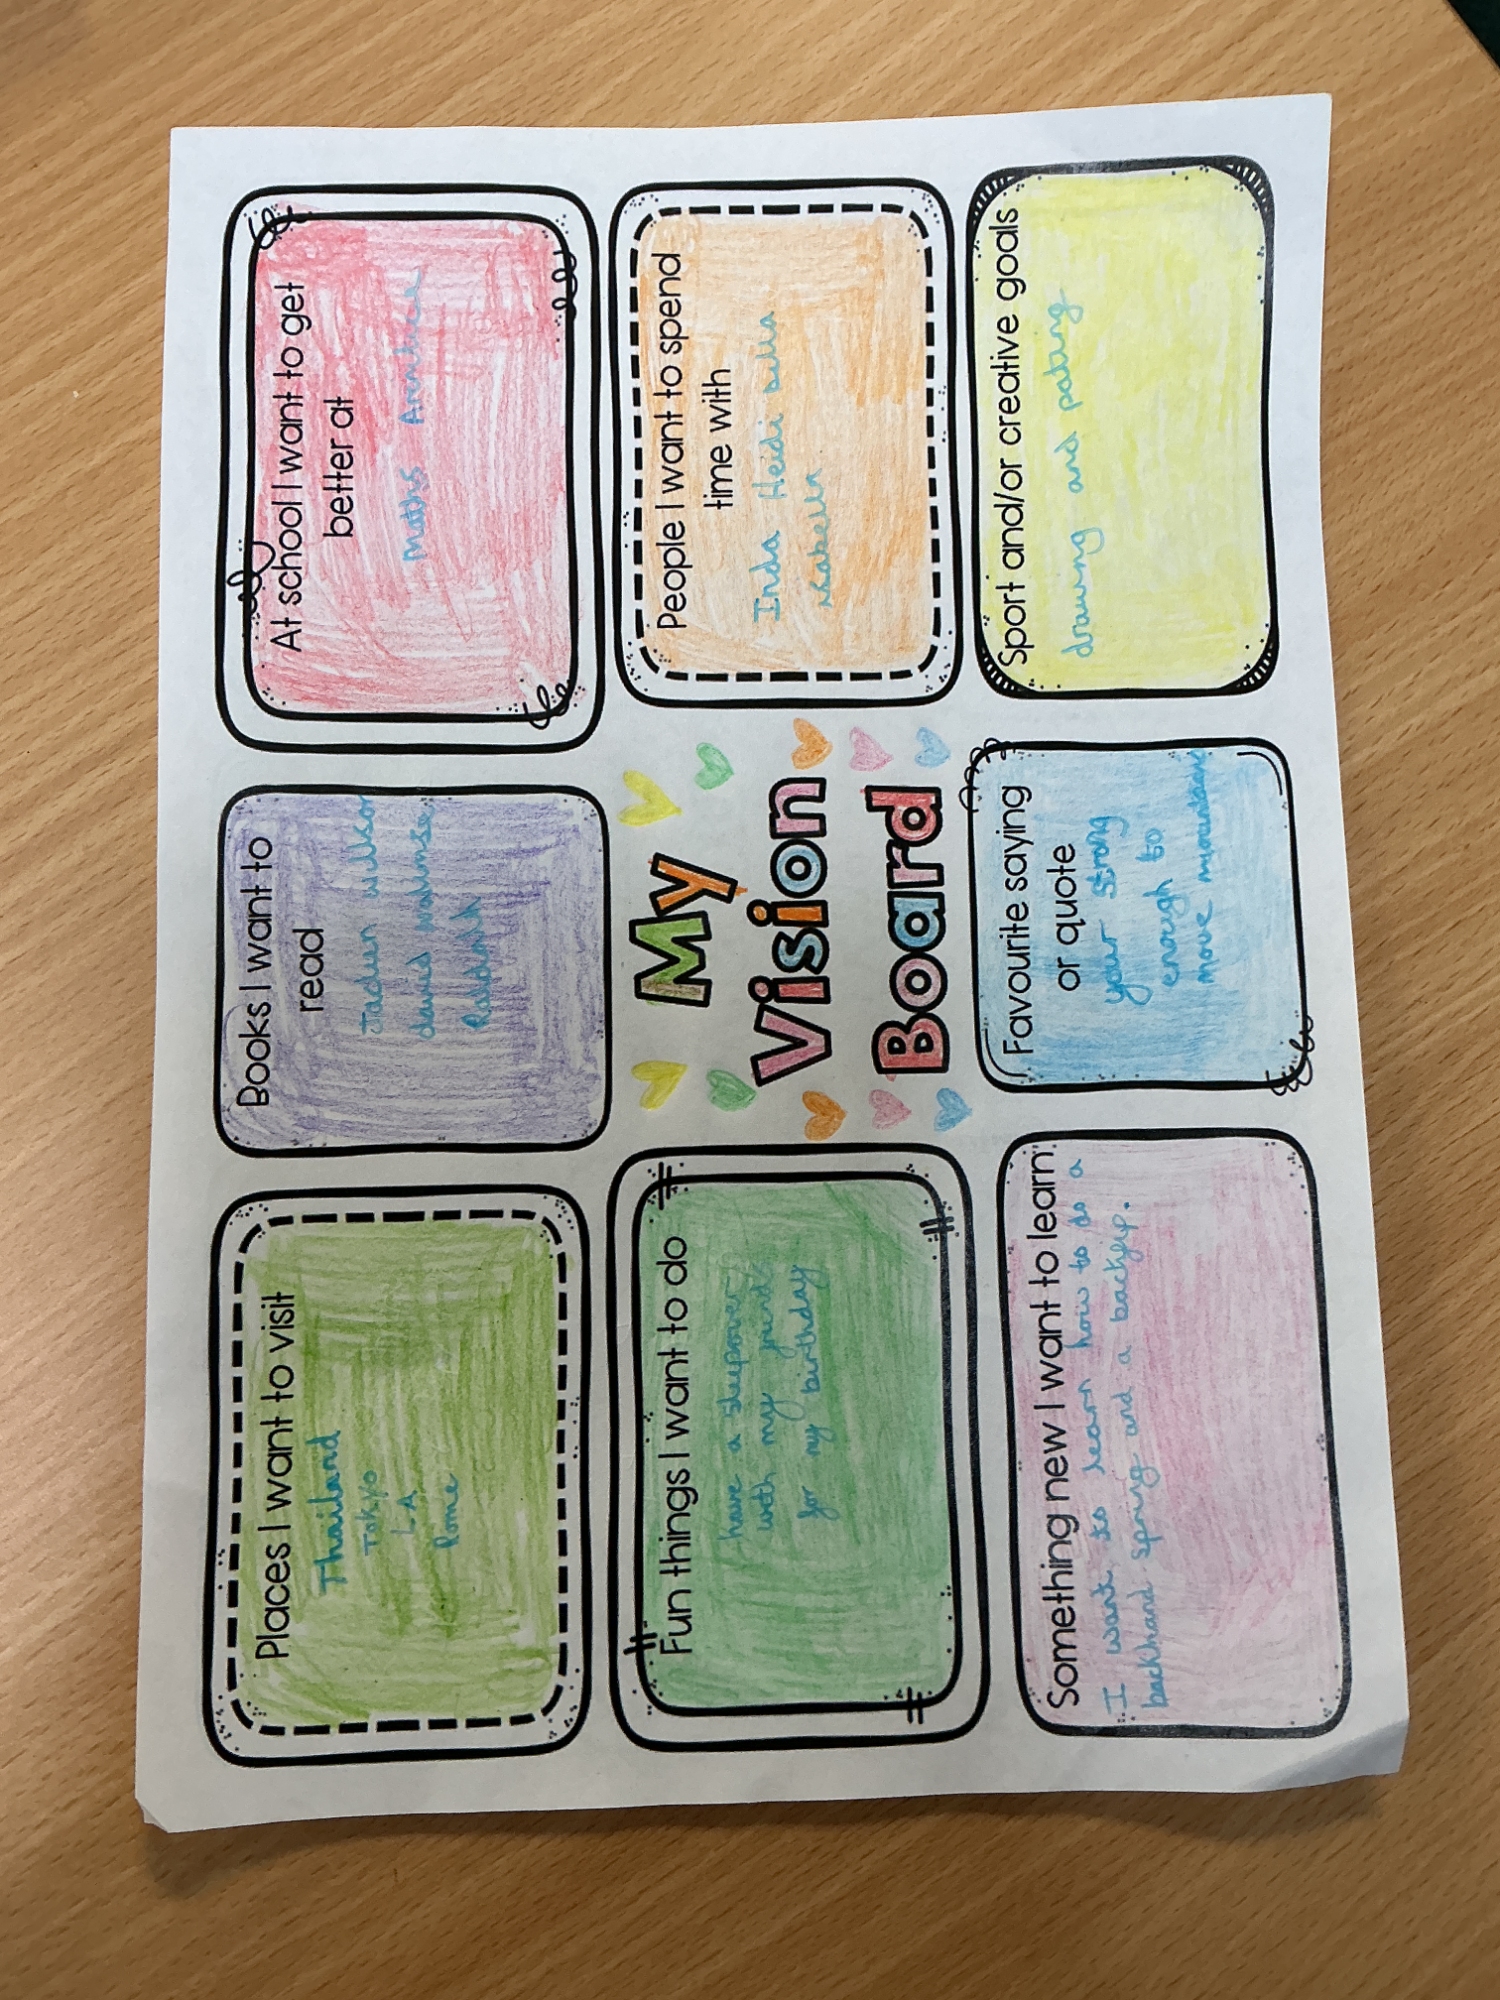 Places I want to visit
Thailand
Tokyo
LA
Rome
Books I want to
read
Jaclun willson
david walimse
Raldalh
At school I want to get
better at
maths
Fun things I want to do
have a sleepover
with my
for my birthday
My
Vision
Board
People I want to spend
time with
Inda Heidi
isabella
Something new I want to learn
I want to learn how to do a
backhand spring and a backflip.
Favourite saying
or quote
your strong
enough to
move mountains
Sport and/or creative goals
drawing and pating